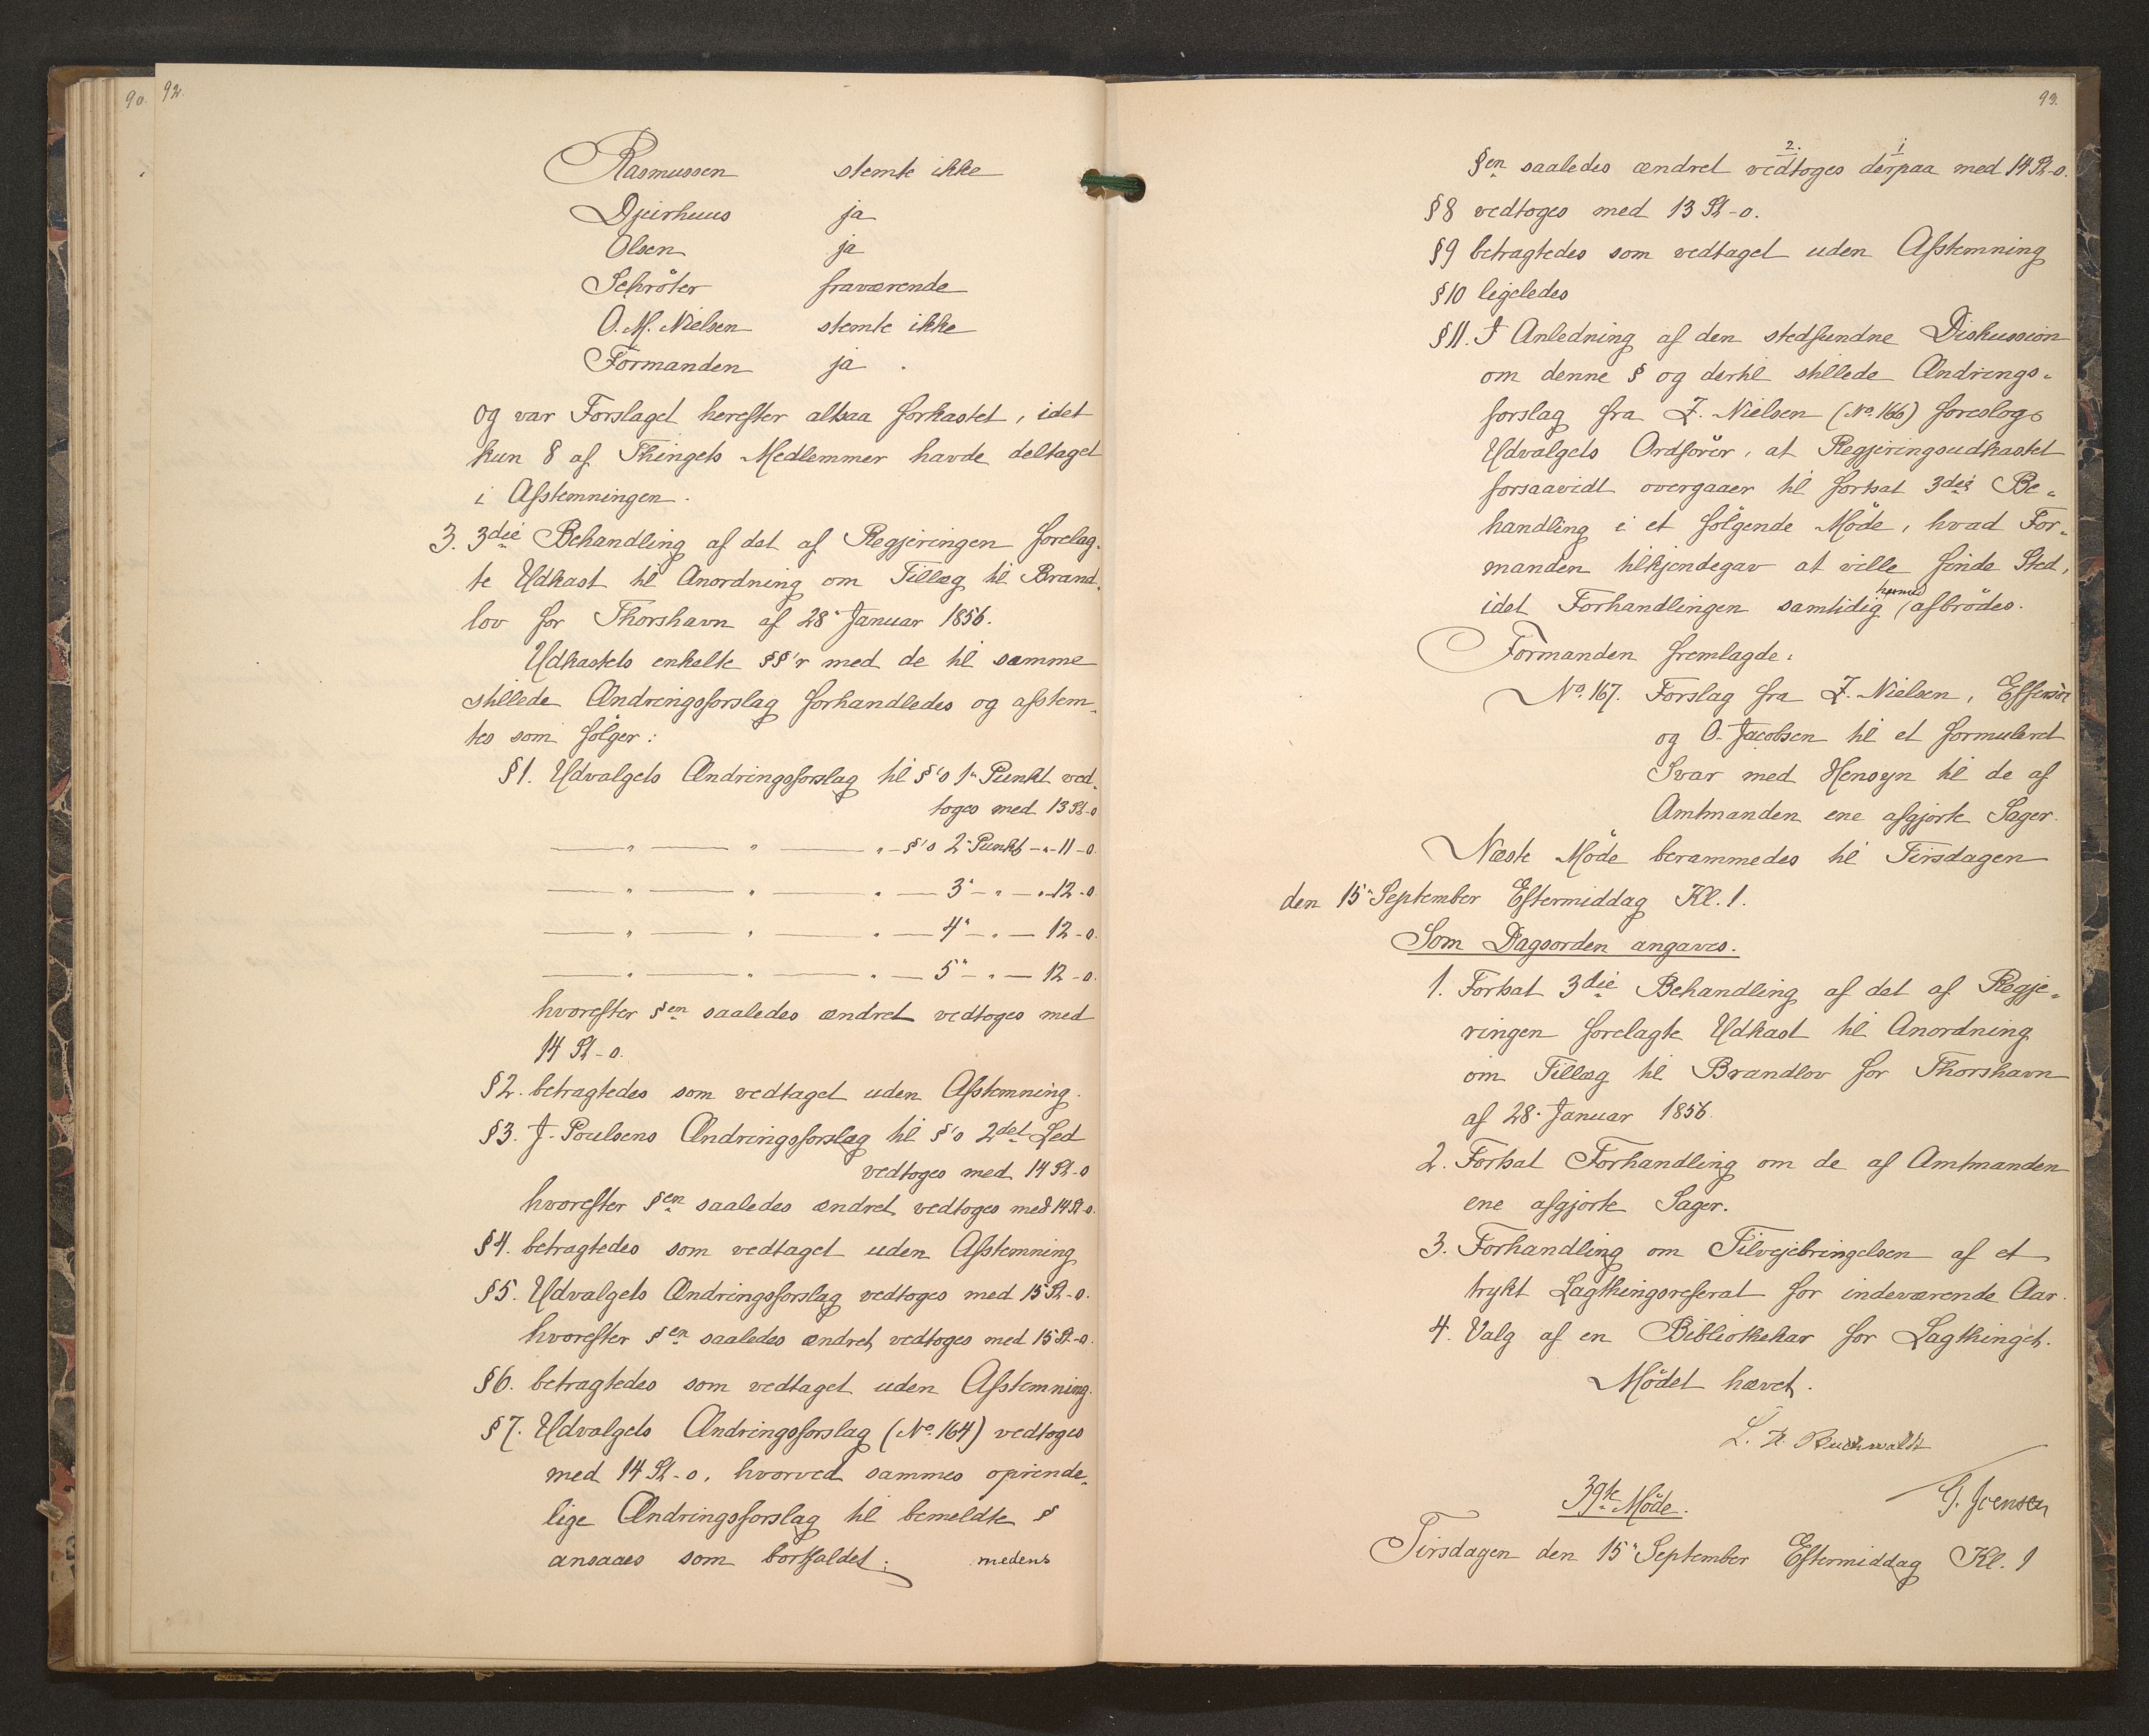 90.
92.
Rasmussen stemte ikke
Djurhuus ja
Olsen ja
Schröter fraværende
O. M. Nielsen stemte ikke
Formanden ja.
og var Forslaget herefter altsaa forkastet, idet
kun 8 af Thingets Medlemmer havde deltaget
i Afstemningen.
3. 3die Behandling af det af Regjeringen forelag-
te Udkast til Anordning om Tillæg til Brand-
lov for Thorshavn af 28' Januar 1856.
Udkastets enkelte §§'r med de til samme
stillede Ændringsforslag forhandledes og afstem-
tes som fölger:
§1. Udvalgets Ændringsforslag til §'s 1" Punkt ved-
toges med 13 St-0
— " — " — " - §'s 2" Punkt - " - 11-0.
— " — " — " — 3" - " - " - 12-0
— " — " — " — 4" - " — 12-0.
— " — " — " — 5" - " — 12-0.
hvorefter §en saaledes ændret vedtoges med
14 St-0.
§2. betragtedes som vedtaget uden Afstemning.
§3. J. Poulsens Ændringsforslag til §'s 2det Led
vedtoges med 14 St-0
hvorefter §en saaledes ændret vedtoges med 14 St-0.
§4. betragtedes som vedtaget uden Afstemning
§5. Udvalgets Ændringsforslag vedtoges med 15 St-0.
hvorefter §en saaledes ændret vedtoges med 15 St-0.
§6. betragtedes som vedtaget uden Afstemning.
§7. Udvalgets Ændringsforslag (No. 164) vedtoges
med 14 St-0, hvorved sammes oprinde-
lige Ændringsforslag til bemeldte §
ansaaes som bortfaldet; medens
93.
2. 1
§en saaledes ændret vedtoges derpaa med 14 St-0.
§8 vedtoges med 13 St-0.
§9 betragtedes som vedtaget uden Afstemning
§10 ligeledes
§11. I Anledning af den stedfundne Diskussion
om denne § og dertil stillede Ændrings-
forslag fra Z. Nielsen (No. 166) foreslog
Udvalgets Ordförer, at Regjeringsudkastet
forsaavidt overgaaer til fortsat 3die Be-
handling i et fölgende Möde, hvad For-
manden tilkjendegav at ville finde Sted,
idet Forhandlingen samtidig hermed afbrödes.
Formanden fremlagde:
No. 167. Forslag fra Z. Nielsen, Effersöe
og O. Jacobsen til et formuleret
Svar med Hensyn til de af
Amtmanden ene afgjorte Sager.
Næste Möde berammedes til Tirsdagen
den 15" September Eftermiddag Kl. 1.
Som Dagsorden angaves.
1. Fortsat 3die Behandling af det af Regje-
ringen forelagte Udkast til Anordning
om Tillæg til Brandlov for Thorshavn
af 28. Januar 1856.
2. Fortsat Forhandling om de af Amtmanden
ene afgjorte Sager.
3. Forhandling om Tilvejebringelsen af et
trykt Lagthingsreferat for indeværende Aar.
4. Valg af en Bibliothekar for Lagthinget.
Mödet hævet.
L. A. Buchwaldt
G. Joensen
39te Möde.
Tirsdagen den 15" September Eftermiddag Kl. 1